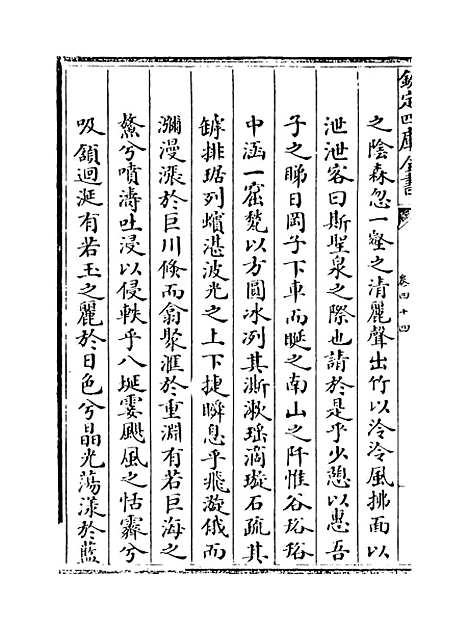 欽定四庫全書
卷四十四
之陰森忽一壑之清麗聲出竹以泠泠風拂面以
泄泄客曰斯聖泉之際也請於是乎少憩以惠吾
子之睇日岡子下車而睨之南山之阡惟谷硌硌
中涵一窟甃以方圓冰冽其澌漱瑤滴璇石疏其
罅排琚列蠙湛波光之上下捷瞬息乎飛漩俄而
瀰漫漲於巨川倏而翕聚滙於重淵有若巨海之
鰲兮噴濤吐浸以侵軼乎八埏霎颶風之恬霽兮
吸頷迴涎有若玉之麗於日色兮晶光蕩漾於藍